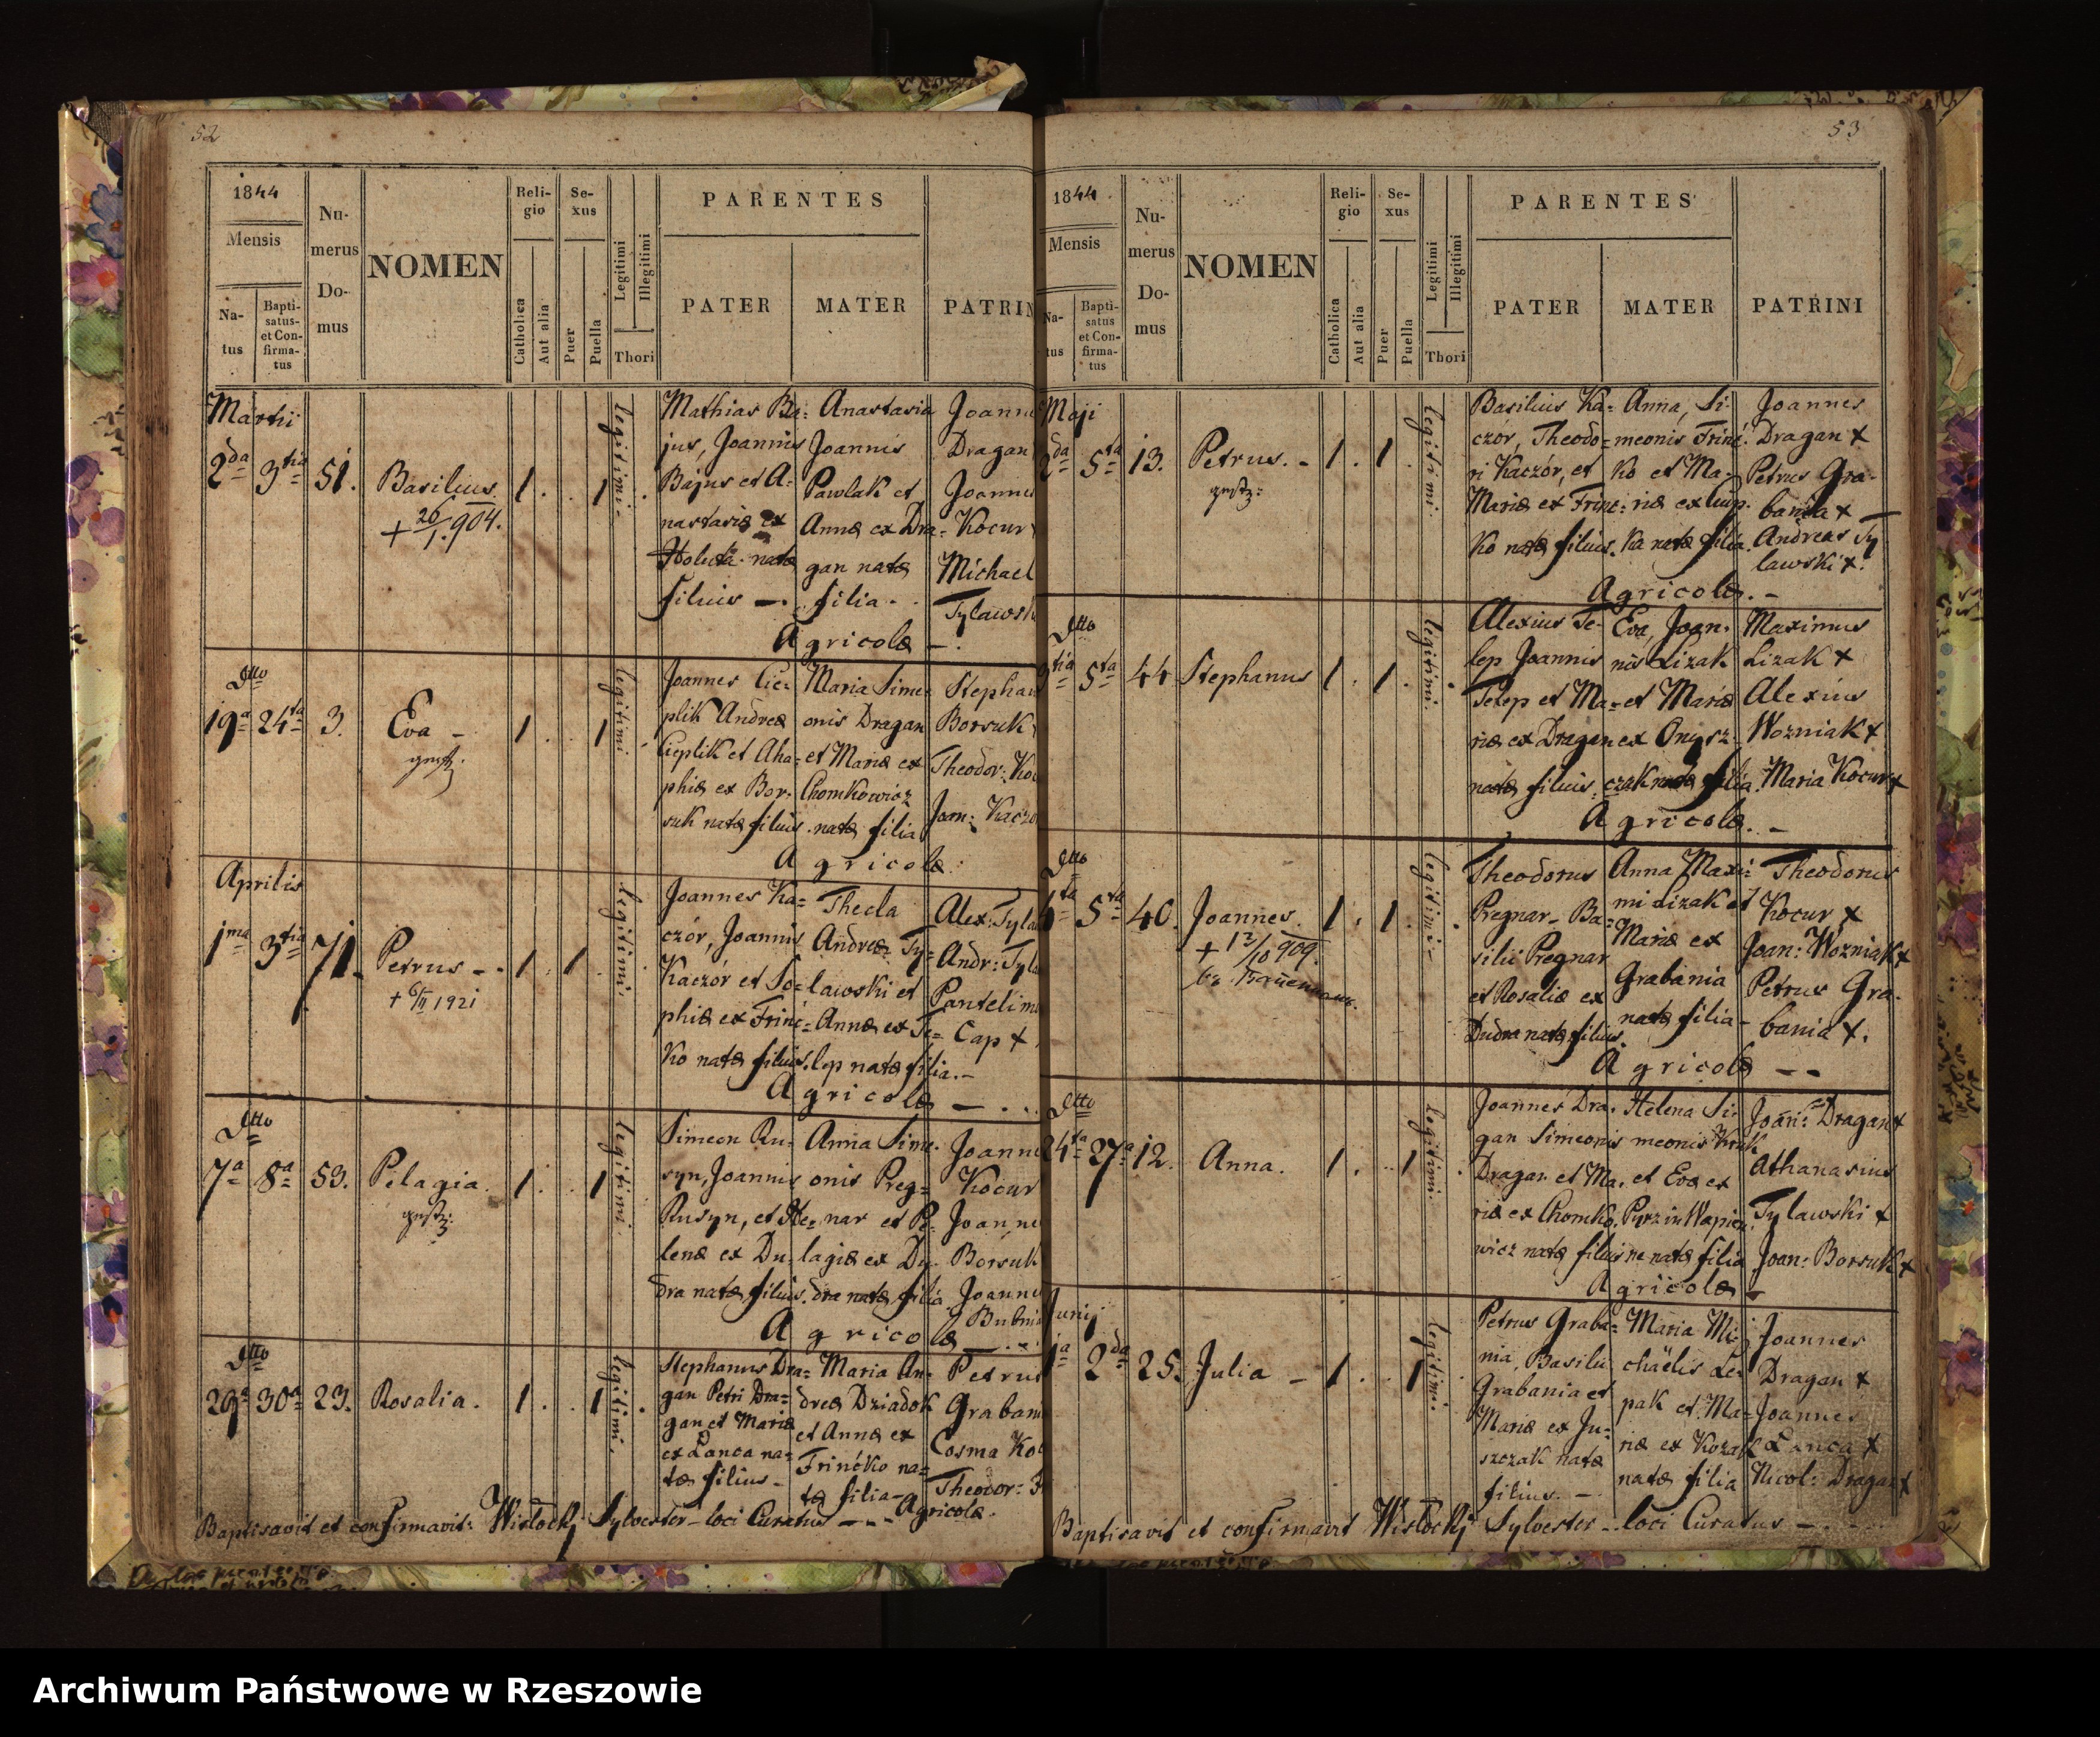 52
1844
Mensis
Na-
tus
Bapti-
satus-
et Con-
firma-
tus
Nu-
merus
Do-
mus
NOMEN
Reli-
gio
Catholica
Aut alia
Se-
xus
Puer
Puella
Legitimi
Illegitimi
Thori
PARENTES
PATER
MATER
PATRIN
Martii
2da 3tia 51. Basilius.
+ 26/1.904.
1 . . 1
legitimi.
Mathias Ba-
jus, Joannis
Bajus et A-
nastasiæ ex
Holuta natæ
filius —.
Anastasia
Joannis
Pawlak et
Annæ ex Dra-
gan natæ
filia.
Joanne
Dragan
Joanne
Kocur
Michael
Tylawsk
Agricolæ —.
Dtto
19a 24ta 3. Eva -
gest.
1 . . 1
legitimi
Joannes Cie-
plik Andreæ
Cieplik et Aha-
phiæ ex Bor-
suk natæ filius.
Maria Sime-
onis Dragan
et Mariæ ex
Chomkowicz
natæ filia
Stephan
Borsuk
Theodor: Ko
Joan: Kaczo
Agricolæ.
Aprilis
1ma 3tia 71. Petrus - .
+ 6/II 1921
1 . 1
legitimi.
Joannes Ka-
czór, Joannis
Kaczór et So-
phiæ ex Trine-
ko natæ filius.
Thecla
Andreæ Ty-
lawski et
Annæ ex Te-
lep natæ filia. -
Alex: Tyla
Andr: Tyla
Pantelim
Cap +
Agricolæ —...
Dtto
7a 8a 53. Pelagia.
gest:
1 . . 1
legitimi.
Simeon Ru-
syn, Joannis
Rusyn, et He-
lenæ ex Du-
dra natæ filius.
Anna Sime-
onis Preg-
nar et Pe-
lagiæ ex Du-
dra natæ filia
Joanne
Kocur
Joanne
Borsuk
Joanne
Bubnia
Agricolæ —...
Dtto
29a 30a 23. Rosalia.
1 . . 1
legitimi.
Stephanus Dra-
gan Petri Dra-
gan et Mariæ
ex Lanca na-
tæ filius -
Maria An-
dreæ Dziadok
et Annæ ex
Trinéko na-
tæ filia-
Petrus
Graban
Cosma Ko
Theodor:
Agricolæ.
Baptisavit et confirmavit: Wisłockj Sylvester loci Curatus —..
53
1844.
Mensis
Na-
tus
Bapti-
satus
et Con-
firma-
tus
Nu-
merus
Do-
mus
NOMEN
Reli-
gio
Catholica
Aut alia
Se-
xus
Puer
Puella
Legitimi
Illegitimi
Thori
PARENTES
PATER
MATER
PATRINI
Maji
2da 5ta 13. Petrus. -
gest:
1 . 1
legitimi.
Basilius Ka-
czór, Theodo-
ri Kaczór, et
Mariæ ex Trine-
ko natæ filius.
Anna, Si-
meonis Trine-
ko et Ma-
riæ ex
ka natæ filia.
Joannes
Dragan +
Petrus Gra-
bania +
Andreas Ty
lawski +.
Agricolæ. -
Dtto
3tia 5ta 44 Stephanus
1 . 1
legitimi.
Alexius Te-
lep Joannis
Telep et Ma-
riæ ex Dragan
natæ filius.
Eva, Joan-
nis Lizak
et Mariæ
ex Onysz-
czak natæ filia.
Maximus
Lizak +
Alexius
Wozniak +
Maria Kocur +
Agricolæ. -
Dtto
4ta 5ta 40. Joannes.
+ 12/10 909.
1 . 1
legitimi.
Theodorus
Pregnar Ba-
silii Pregnar
et Rosaliæ ex
Dudra natæ filius.
Anna Maxi-
mi Lizak et
Mariæ ex
Grabania
natæ filia -
Theodorus
Kocur +
Joan: Wozniak +
Petrus Gra-
bania +.
Agricolæ - -
Dtto
24ta 27a 12. Anna.
1 . . 1
legitimi.
Joannes Dra-
gan Simeonis
Dragan et Ma-
riæ ex Chomko-
wicz natæ filius
Helena Si-
meonis
et Evæ ex
ne natæ filia
Joan: Dragan +
Athanasius
Tylawski +
Joan: Borsuk +
Agricolæ -
Junij
1a 2da 25. Julia -
1 . . 1
legitimi.
Petrus Graba-
nia, Basilii
Grabania et
Mariæ ex Ju-
szczak natæ
filius. -
Maria Mi-
chaëlis Le-
pak et Ma-
riæ ex Kozak
natæ filia
Joannes
Dragan +
Joannes
Lanca +
Nicol: Dragan +
Baptisavit et confirmavit Wisłockj Sylvester - loci Curatus —.
Archiwum Państwowe w Rzeszowie